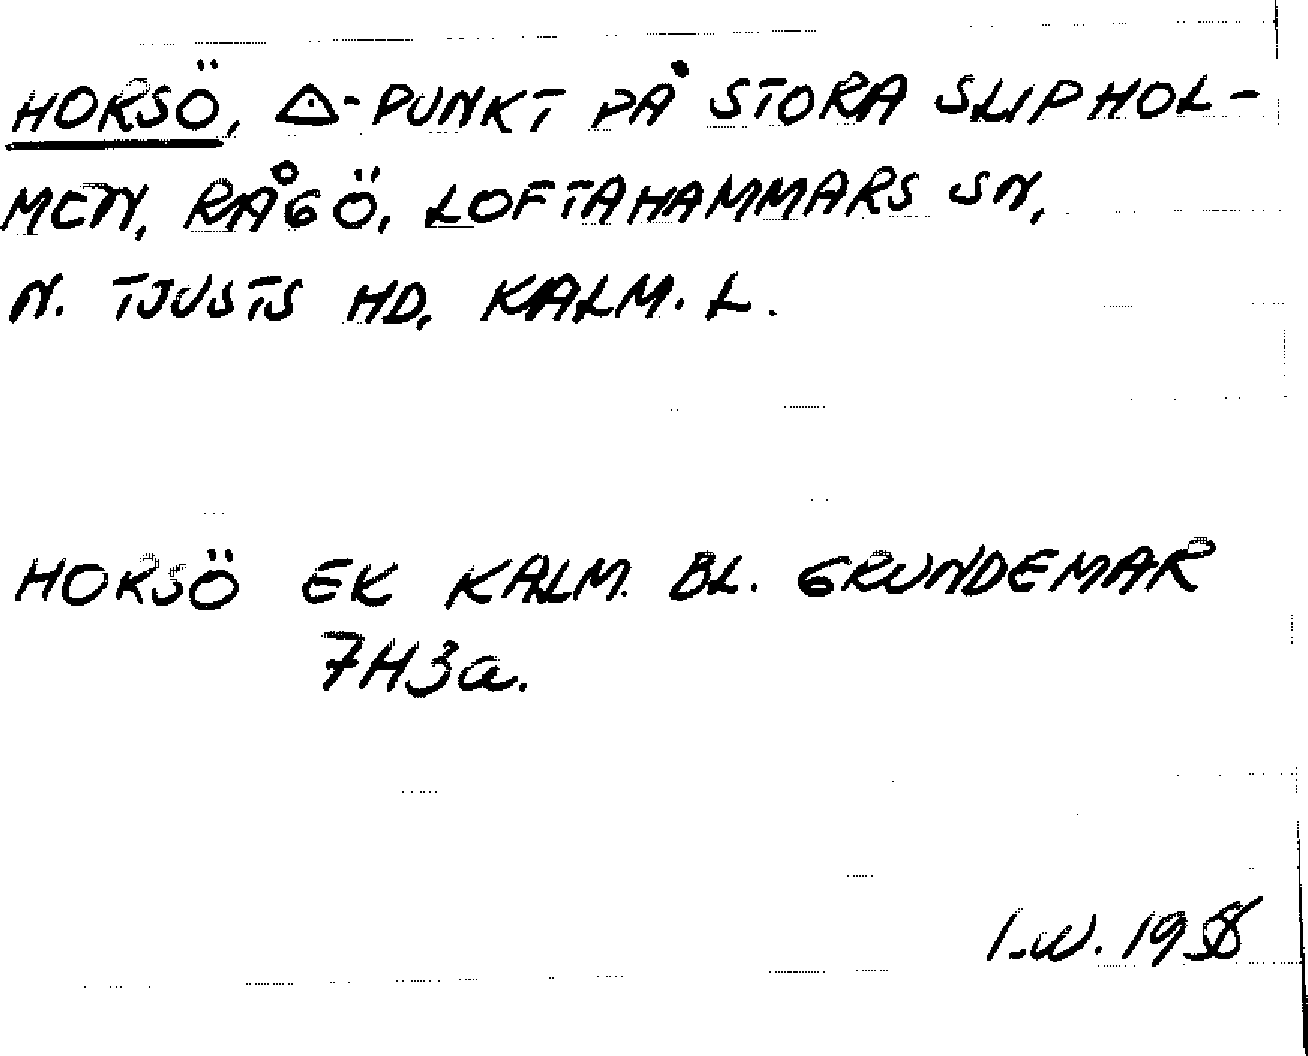 HORSÖ, △-PUNKT PÅ STORA SLIPHOL-
MEN, RÅGÖ, LOFTAHAMMARS SN,
N. TJUSTS HD, KALM. L.
HORSÖ EK KALM. BL. GRUNDEMAR
7H3a.
I.W.